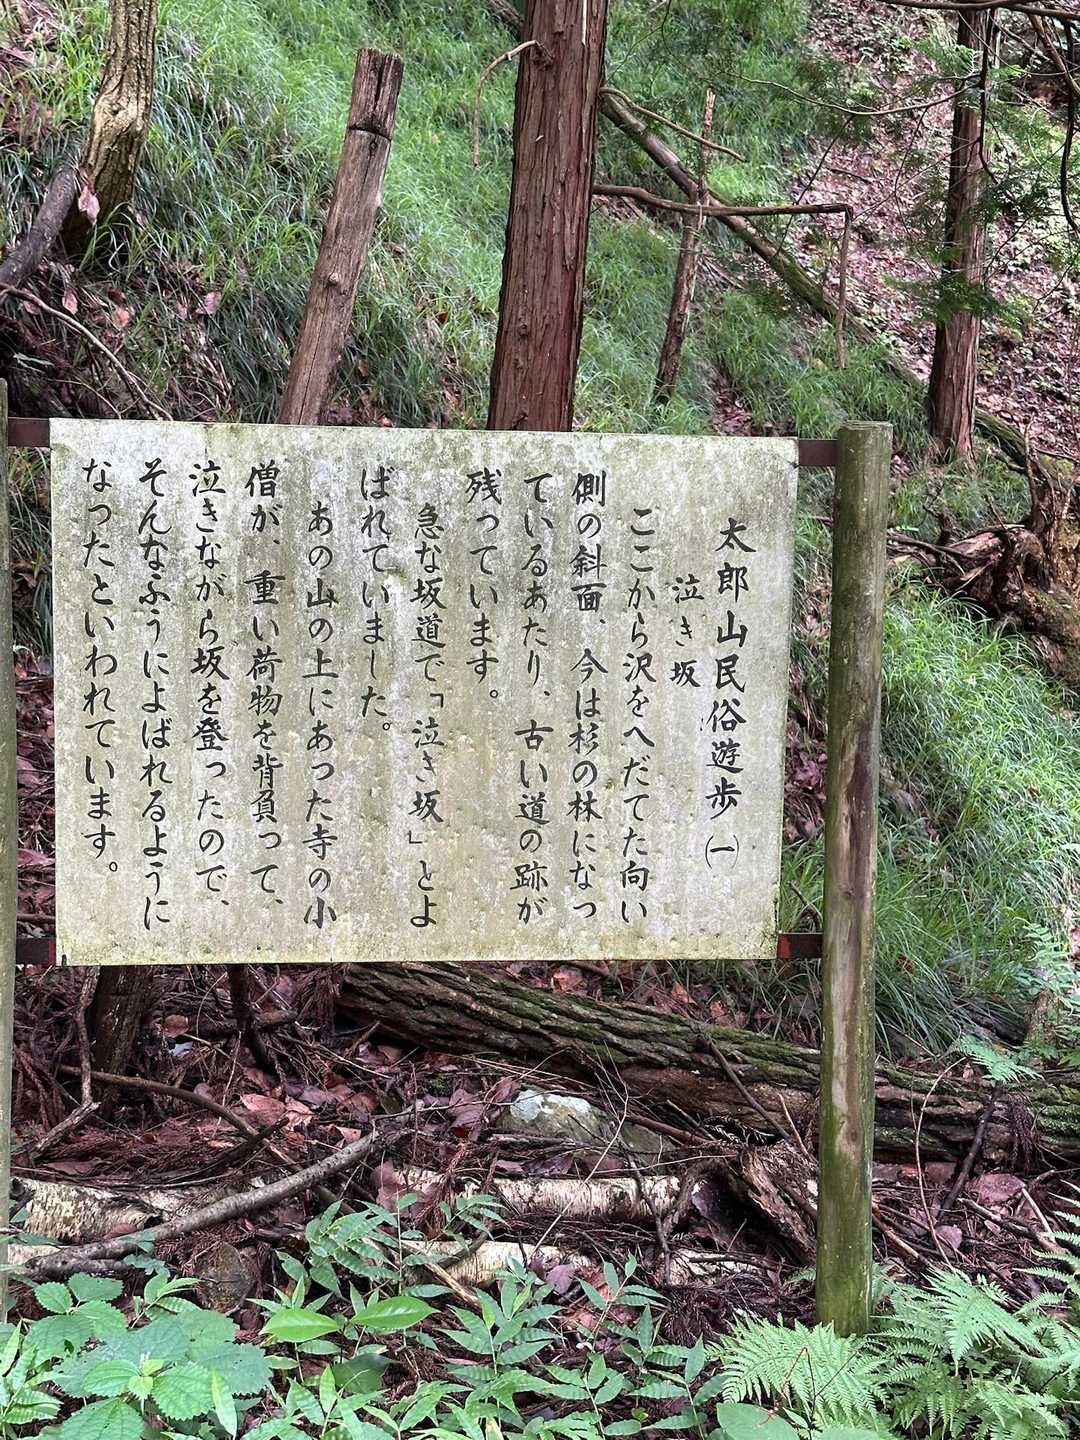 太郎山民俗遊歩(一)
泣き坂
ここから沢をへだてた向い
側の斜面、今は杉の林になっ
ているあたり、古い道の跡が
残っています。
急な坂道で「泣き坂」とよ
ばれていました。
あの山の上にあった寺の小
僧が、重い荷物を背負って、
泣きながら坂を登ったので、
そんなふうによばれるように
なったといわれています。